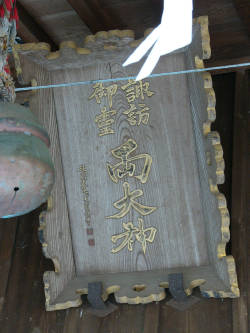 諏訪
御霊
両大神